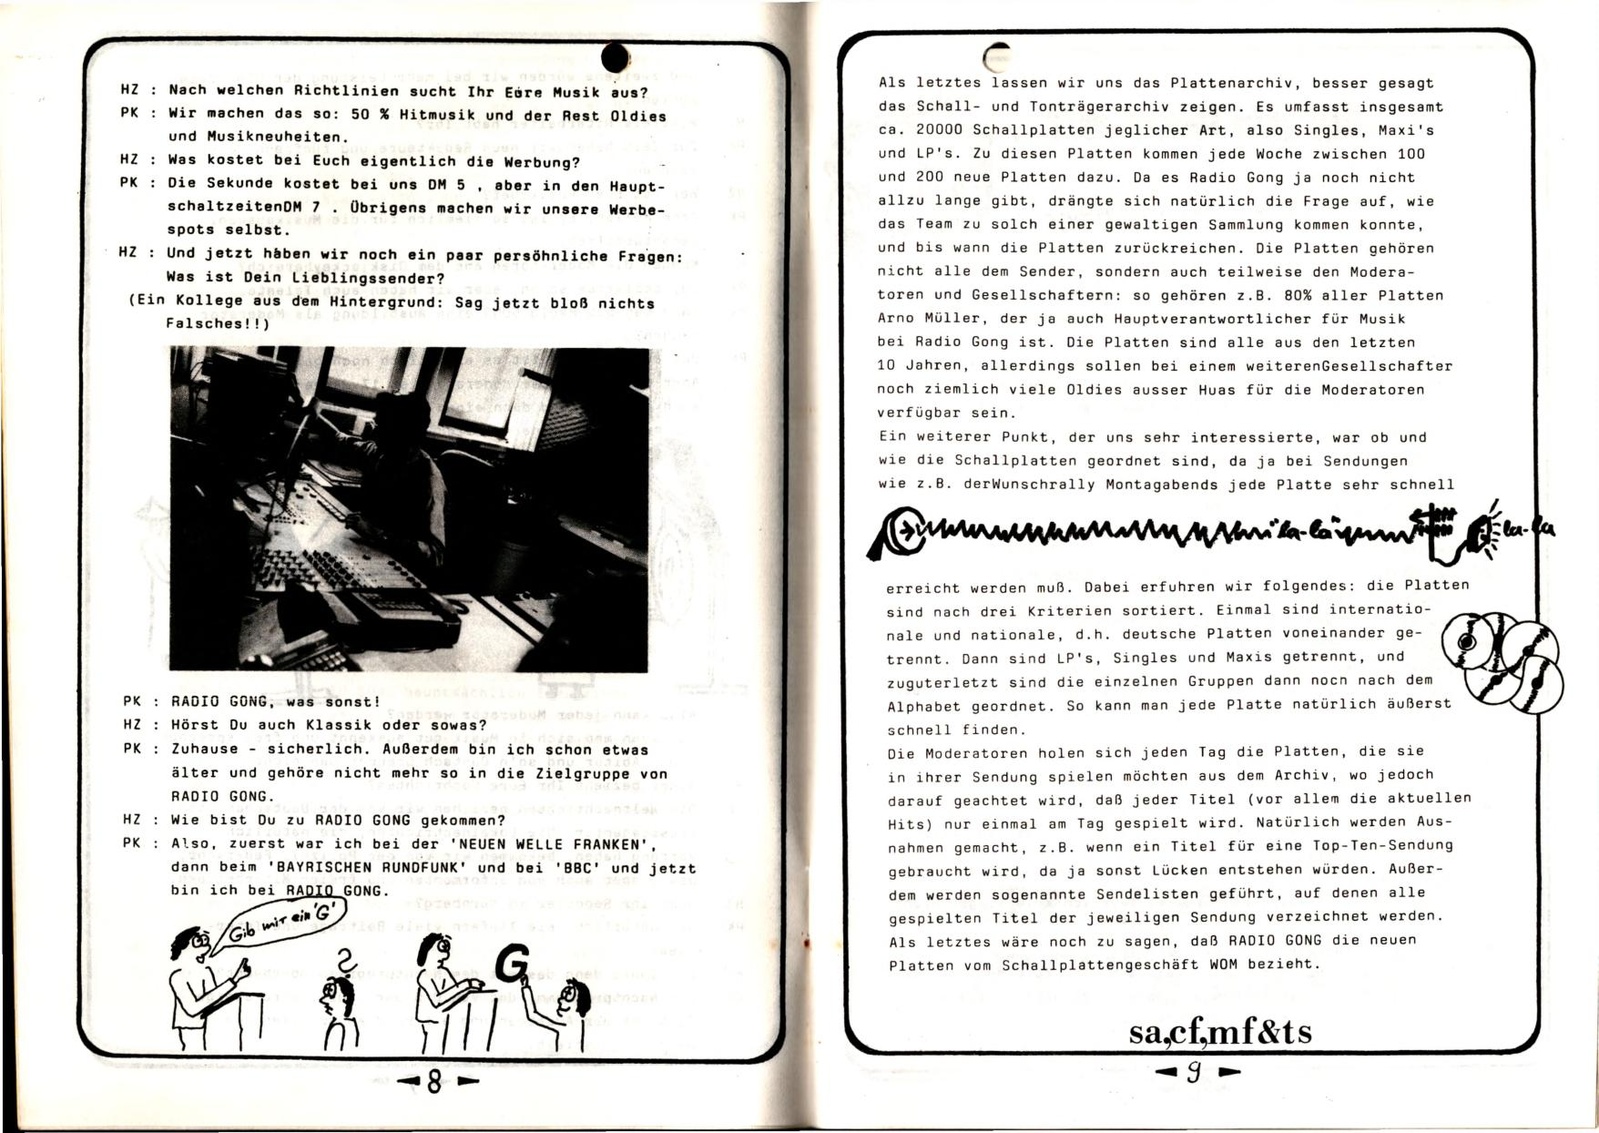 HZ : Nach welchen Richtlinien sucht Ihr Eure Musik aus?
PK : Wir machen das so: 50 % Hitmusik und der Rest Oldies
und Musikneuheiten.
HZ : Was kostet bei Euch eigentlich die Werbung?
PK : Die Sekunde kostet bei uns DM 5 , aber in den Haupt-
schaltzeitenDM 7 . Übrigens machen wir unsere Werbe-
spots selbst.
HZ : Und jetzt haben wir noch ein paar persöhnliche Fragen:
Was ist Dein Lieblingssender?
(Ein Kollege aus dem Hintergrund: Sag jetzt bloß nichts
Falsches!!)
PK : RADIO GONG, was sonst!
HZ : Hörst Du auch Klassik oder sowas?
PK : Zuhause - sicherlich. Außerdem bin ich schon etwas
älter und gehöre nicht mehr so in die Zielgruppe von
RADIO GONG.
HZ : Wie bist Du zu RADIO GONG gekommen?
PK : Also, zuerst war ich bei der 'NEUEN WELLE FRANKEN',
dann beim 'BAYRISCHEN RUNDFUNK' und bei 'BBC' und jetzt
bin ich bei RADIO GONG.
Gib mir ein 'G'
?
G
8
Als letztes lassen wir uns das Plattenarchiv, besser gesagt
das Schall- und Tonträgerarchiv zeigen. Es umfasst insgesamt
ca. 20000 Schallplatten jeglicher Art, also Singles, Maxi's
und LP's. Zu diesen Platten kommen jede Woche zwischen 100
und 200 neue Platten dazu. Da es Radio Gong ja noch nicht
allzu lange gibt, drängte sich natürlich die Frage auf, wie
das Team zu solch einer gewaltigen Sammlung kommen konnte,
und bis wann die Platten zurückreichen. Die Platten gehören
nicht alle dem Sender, sondern auch teilweise den Modera-
toren und Gesellschaftern: so gehören z.B. 80% aller Platten
Arno Müller, der ja auch Hauptverantwortlicher für Musik
bei Radio Gong ist. Die Platten sind alle aus den letzten
10 Jahren, allerdings sollen bei einem weiterenGesellschafter
noch ziemlich viele Oldies ausser Huas für die Moderatoren
verfügbar sein.
Ein weiterer Punkt, der uns sehr interessierte, war ob und
wie die Schallplatten geordnet sind, da ja bei Sendungen
wie z.B. derWunschrally Montagabends jede Platte sehr schnell
la-la
la-la
erreicht werden muß. Dabei erfuhren wir folgendes: die Platten
sind nach drei Kriterien sortiert. Einmal sind internatio-
nale und nationale, d.h. deutsche Platten voneinander ge-
trennt. Dann sind LP's, Singles und Maxis getrennt, und
zuguterletzt sind die einzelnen Gruppen dann nocn nach dem
Alphabet geordnet. So kann man jede Platte natürlich äußerst
schnell finden.
Die Moderatoren holen sich jeden Tag die Platten, die sie
in ihrer Sendung spielen möchten aus dem Archiv, wo jedoch
darauf geachtet wird, daß jeder Titel (vor allem die aktuellen
Hits) nur einmal am Tag gespielt wird. Natürlich werden Aus-
nahmen gemacht, z.B. wenn ein Titel für eine Top-Ten-Sendung
gebraucht wird, da ja sonst Lücken entstehen würden. Außer-
dem werden sogenannte Sendelisten geführt, auf denen alle
gespielten Titel der jeweiligen Sendung verzeichnet werden.
Als letztes wäre noch zu sagen, daß RADIO GONG die neuen
Platten vom Schallplattengeschäft WOM bezieht.
sa,cf,mf&ts
9